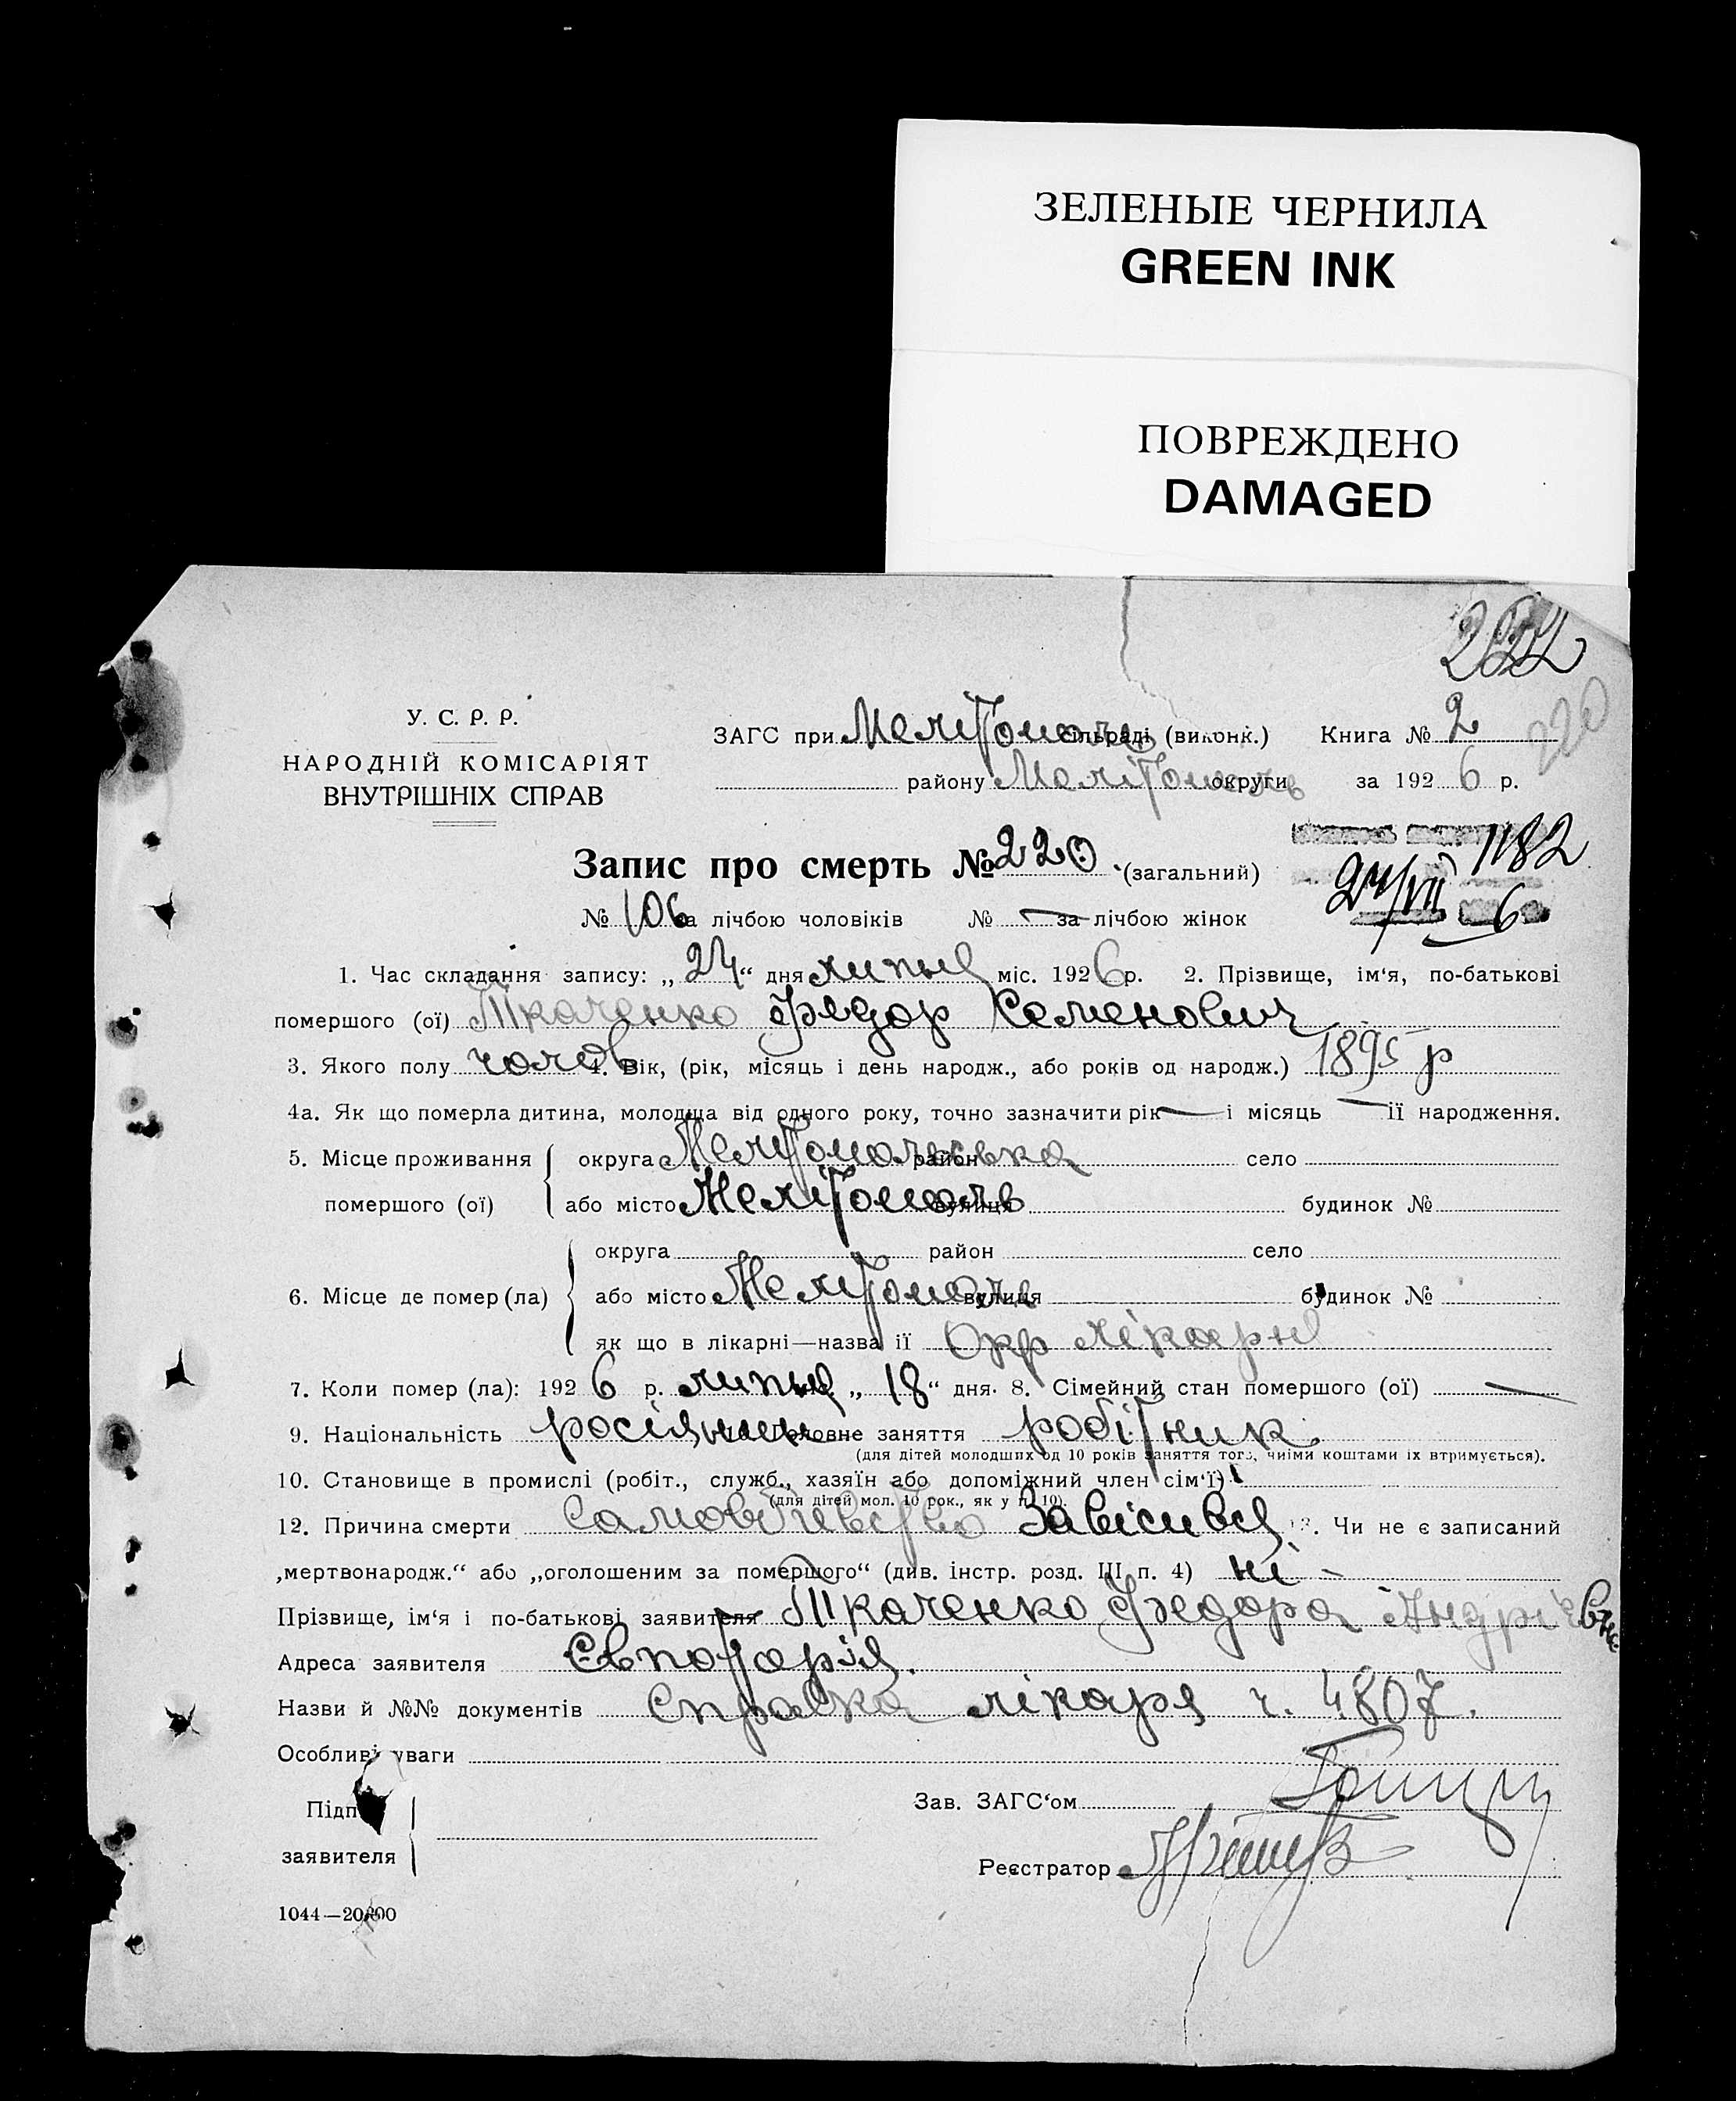 ЗЕЛЕНЫЕ ЧЕРНИЛА
GREEN INK
ПОВРЕЖДЕНО
DAMAGED
220
У. С. Р. Р.
НАРОДНІЙ КОМІСАРІЯТ
ВНУТРІШНІХ СПРАВ
ЗАГС при Мелітополь сільраді (виконк.) Книга № 2
району Мелітополь округи за 1926 р.
Запис про смерть № 220 (загальний)
1182
24/VII 6
№ 106 за лічбою чоловіків № — за лічбою жінок
1. Час складання запису: „24“ дня липня міс. 1926 р. 2. Прізвище, ім‘я, по-батькові
помершого (ої) Ткаченко Федор Семенович
3. Якого полу чолов 4. Вік, (рік, місяць і день народж., або років од народж.) 1895 р
4а. Як що померла дитина, молодща від одного року, точно зазначити рік — і місяць — її народження.
5. Місце проживання округа Мелітопольська район село
помершого (ої) або місто Мелітополь вулиця будинок №
округа район село
6. Місце де помер (ла) або місто Мелітополь вулиця будинок №
як що в лікарні—назва її Окр лікарня
7. Коли помер (ла): 1926 р. липня „18“ дня. 8. Сімейний стан помершого (ої) —
9. Національність росіянин головне заняття робітник
(для дітей молодших од 10 років заняття того, чиїми коштами їх втримується).
10. Становище в промислі (робіт., служб., хазяїн або допоміжний член сім‘ї)
(для дітей мол. 10 рок., як у п. 10).
12. Причина смерти Самовбивство Завісився 13. Чи не є записаний
„мертвонародж.“ або „оголошеним за померщого“ (див. інстр. розд. III п. 4) ні -
Прізвище, ім‘я і по-батькові заявителя Ткаченко Федора Андрієвна
Адреса заявителя Євпоторія.
Назви й №№ документів Справка лікаря ч. 4807.
Особливі уваги
Підп
Зав. ЗАГС‘ом
заявителя
Реєстратор
1044—20000